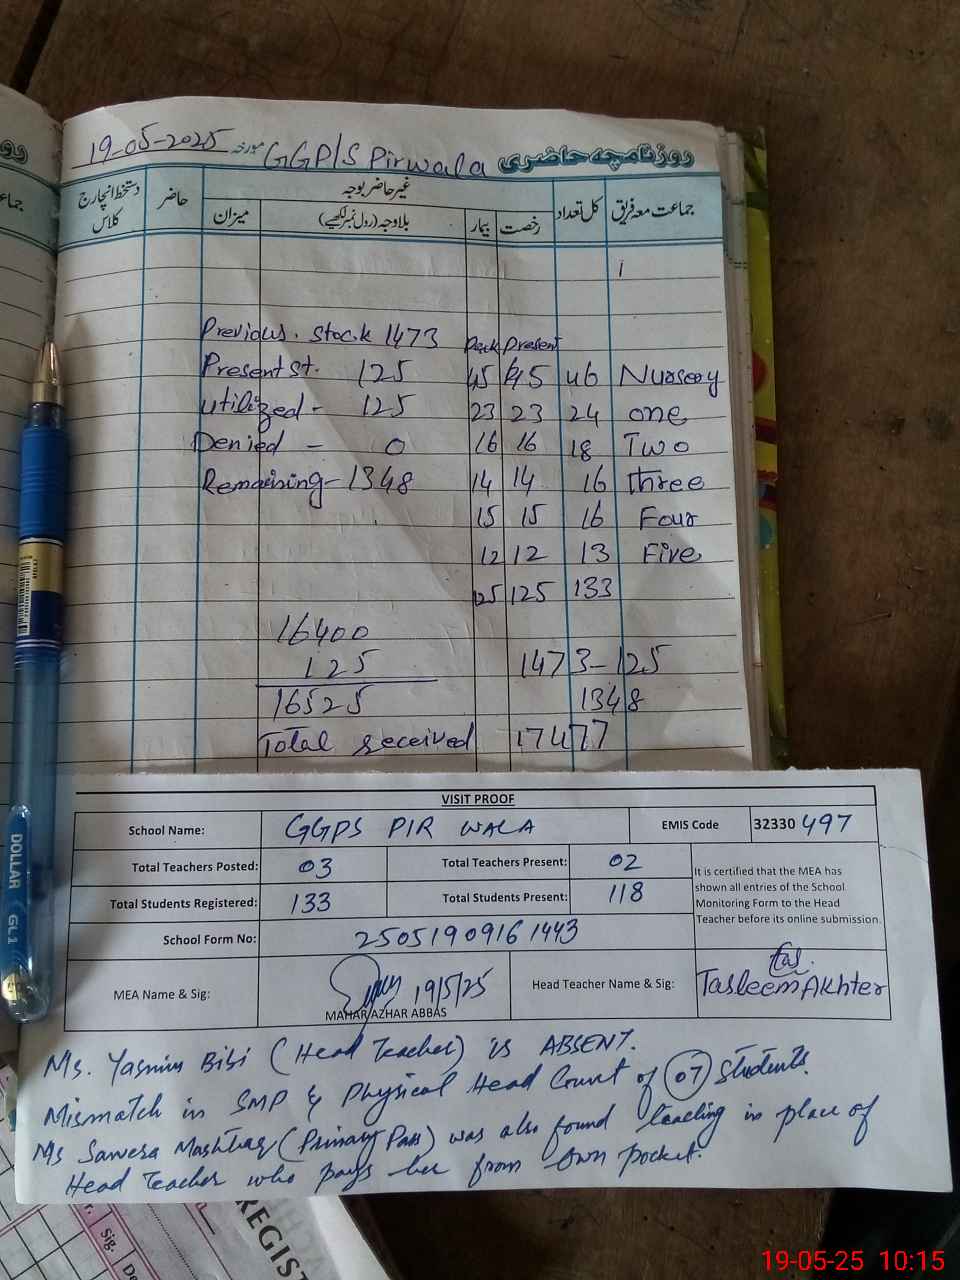 19-05-2025 مورخہ GGP/S Pirwala روزنامچہ حاضری
جماعت معہ فریق کل تعداد غیر حاضر بوجہ حاضر دستخط انچارج کلاس
رخصت بیمار بلاوجہ (رول نمبر لکھیے) میزان
Previous. Stock 1473 Pack Present
Present St. 125 45 45 46 Nursery
Utilized - 125 23 23 24 one
Denied - 0 16 16 18 Two
Remaining - 1348 14 14 16 three
15 15 16 Four
12 12 13 Five
125 125 133
16400
125 1473-125
16525 1348
Total received 17477
VISIT PROOF
School Name: GGPS PIR WALA EMIS Code 32330 497
Total Teachers Posted: 03 Total Teachers Present: 02
Total Students Registered: 133 Total Students Present: 118
It is certified that the MEA has
shown all entries of the School
Monitoring Form to the Head
Teacher before its online submission.
School Form No: 25051909161443
MEA Name & Sig: 19/5/25 MAHAR AZHAR ABBAS Head Teacher Name & Sig: Tasleem Akhter
Ms. Yasmin Bibi (Head Teacher) is ABSENT.
Mismatch in SMP & Physical Head Count of 07 students.
Ms Sawera Mushtaq (Primary Pass) was also found teaching in place of
Head Teacher who pays her from own pocket.
DOLLAR GL1
REGIST
Sig.
19-05-25 10:15